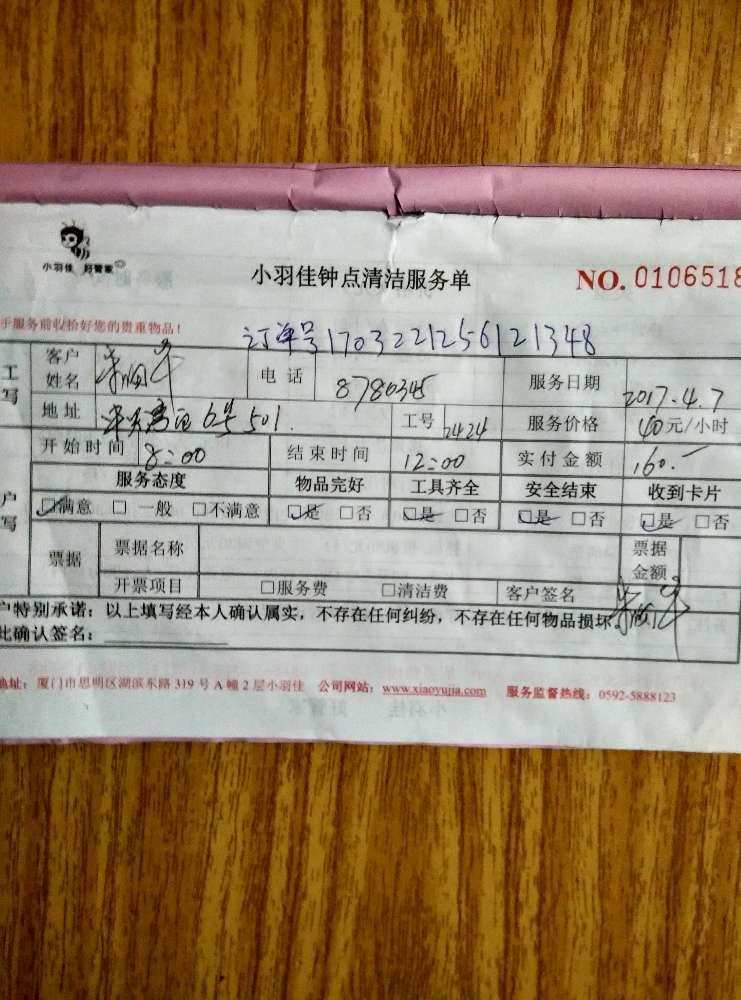 小羽佳 好管家
小羽佳钟点清洁服务单
NO. 0106518
手服务前收拾好您的贵重物品!
订单号1703221256121348
工 写
客户姓名 电话 8780345 服务日期 2017.4.7
地址 6号501. 工号 2424 服务价格 40元/小时
开始时间 8:00 结束时间 12:00 实付金额 160.-
户 写
服务态度 物品完好 工具齐全 安全结束 收到卡片
☑满意 □一般 □不满意 ☑是 □否 ☑是 □否 ☑是 □否 ☑是 □否
票据 票据名称 票据金额
开票项目 □服务费 □清洁费 客户签名
户特别承诺:以上填写经本人确认属实,不存在任何纠纷,不存在任何物品损坏
此确认签名:
地址:厦门市思明区湖滨东路319号A幢2层小羽佳 公司网站:www.xiaoyujia.com 服务监督热线:0592-5888123